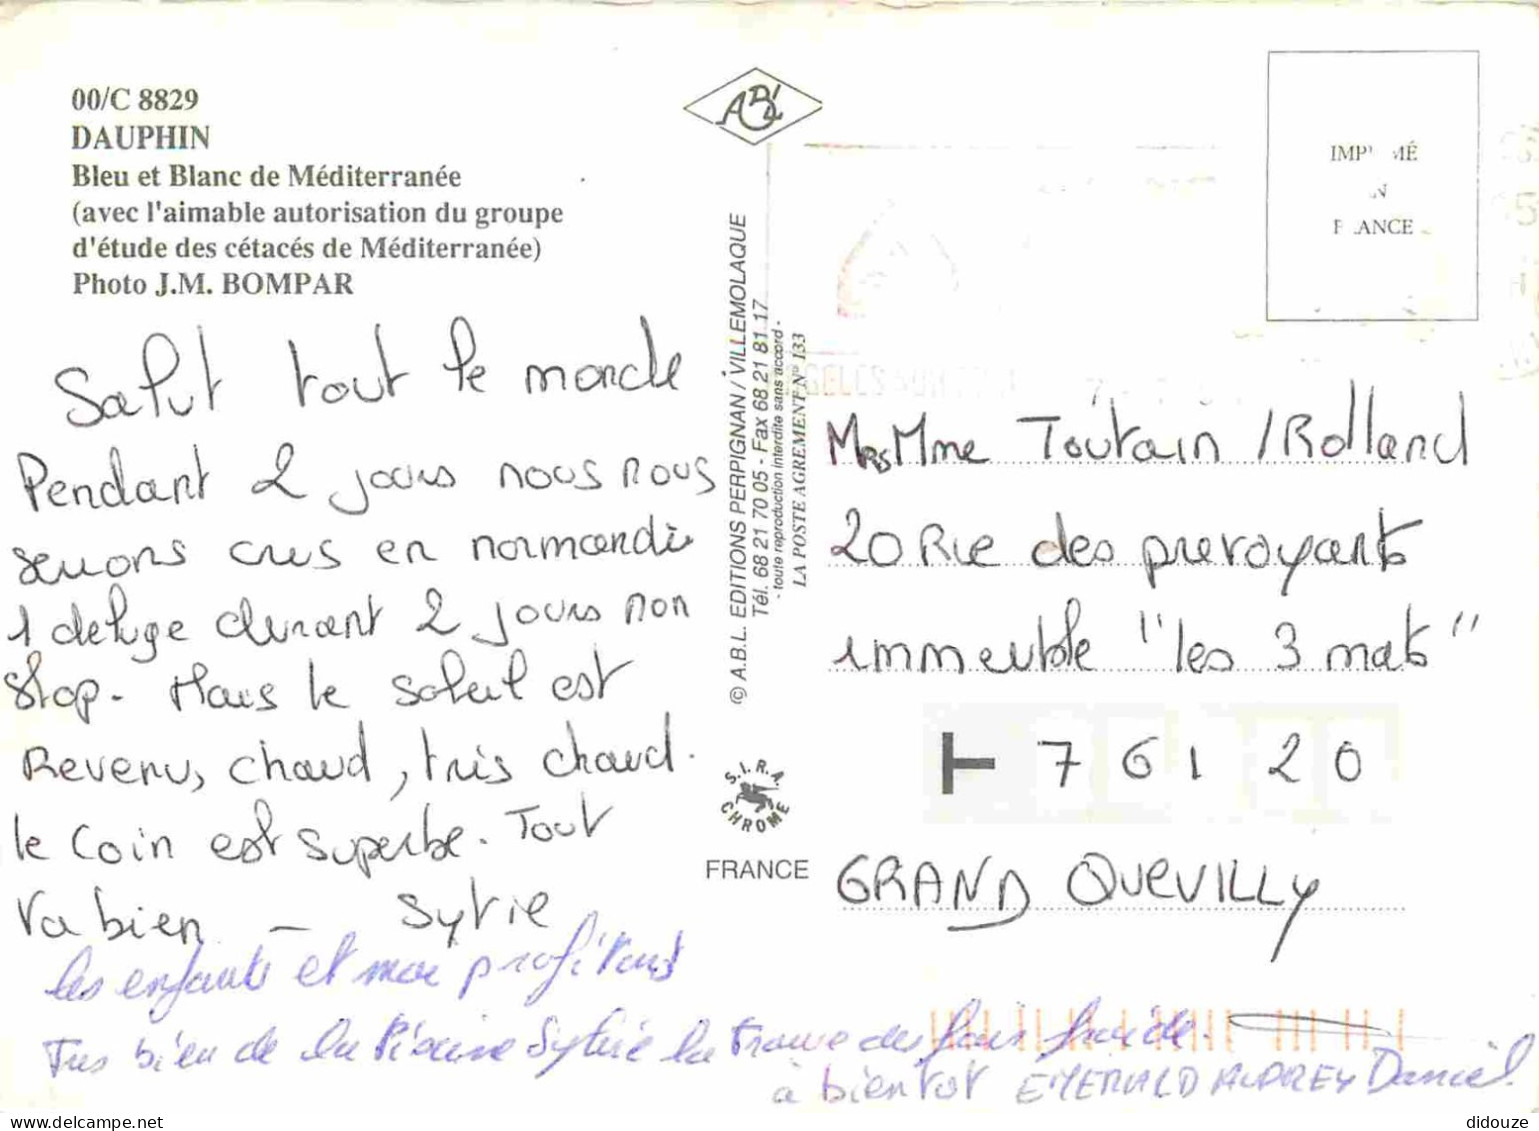 00/C 8829
DAUPHIN
Bleu et Blanc de Méditerranée
(avec l'aimable autorisation du groupe
d'étude des cétacés de Méditerranée)
Photo J.M. BOMPAR
Salut tout le monde
Pendant 2 jours nous nous
serions crus en normandie
1 deluge durant 2 jours non
stop. Mais le soleil est
Revenu, chaud, très chaud.
le coin est superbe. Tout
va bien _ Sylvie
les enfants et moi profitons
Tres bien de la Piscine Sylvie la Trouve des fois froide.
à bientot EMERALD AUDREY Daniel
ABL
© A.B.L. EDITIONS PERPIGNAN / VILLEMOLAQUE
Tél. 68 21 70 05 - Fax 68 21 81 17
- toute reproduction interdite sans accord -
LA POSTE AGREMENT N° 133
S.I.R.A.
CHROME
FRANCE
IMP MÉ
N
F ANCE
Mrs Mme Toutain / Rolland
20 Rue des prevoyants
immeuble "les 3 mats"
T 7 6 1 2 0
GRAND QUEVILLY
delcampe.net
didouze